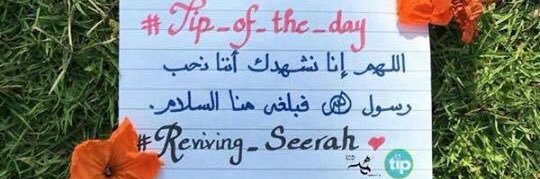 # Tip_of_the_day
اللهم إنا نشهدك أننا نحب
رسول ﷺ فبلغه منا السلام.
#Reviving_Seerah ❤
محمد tip